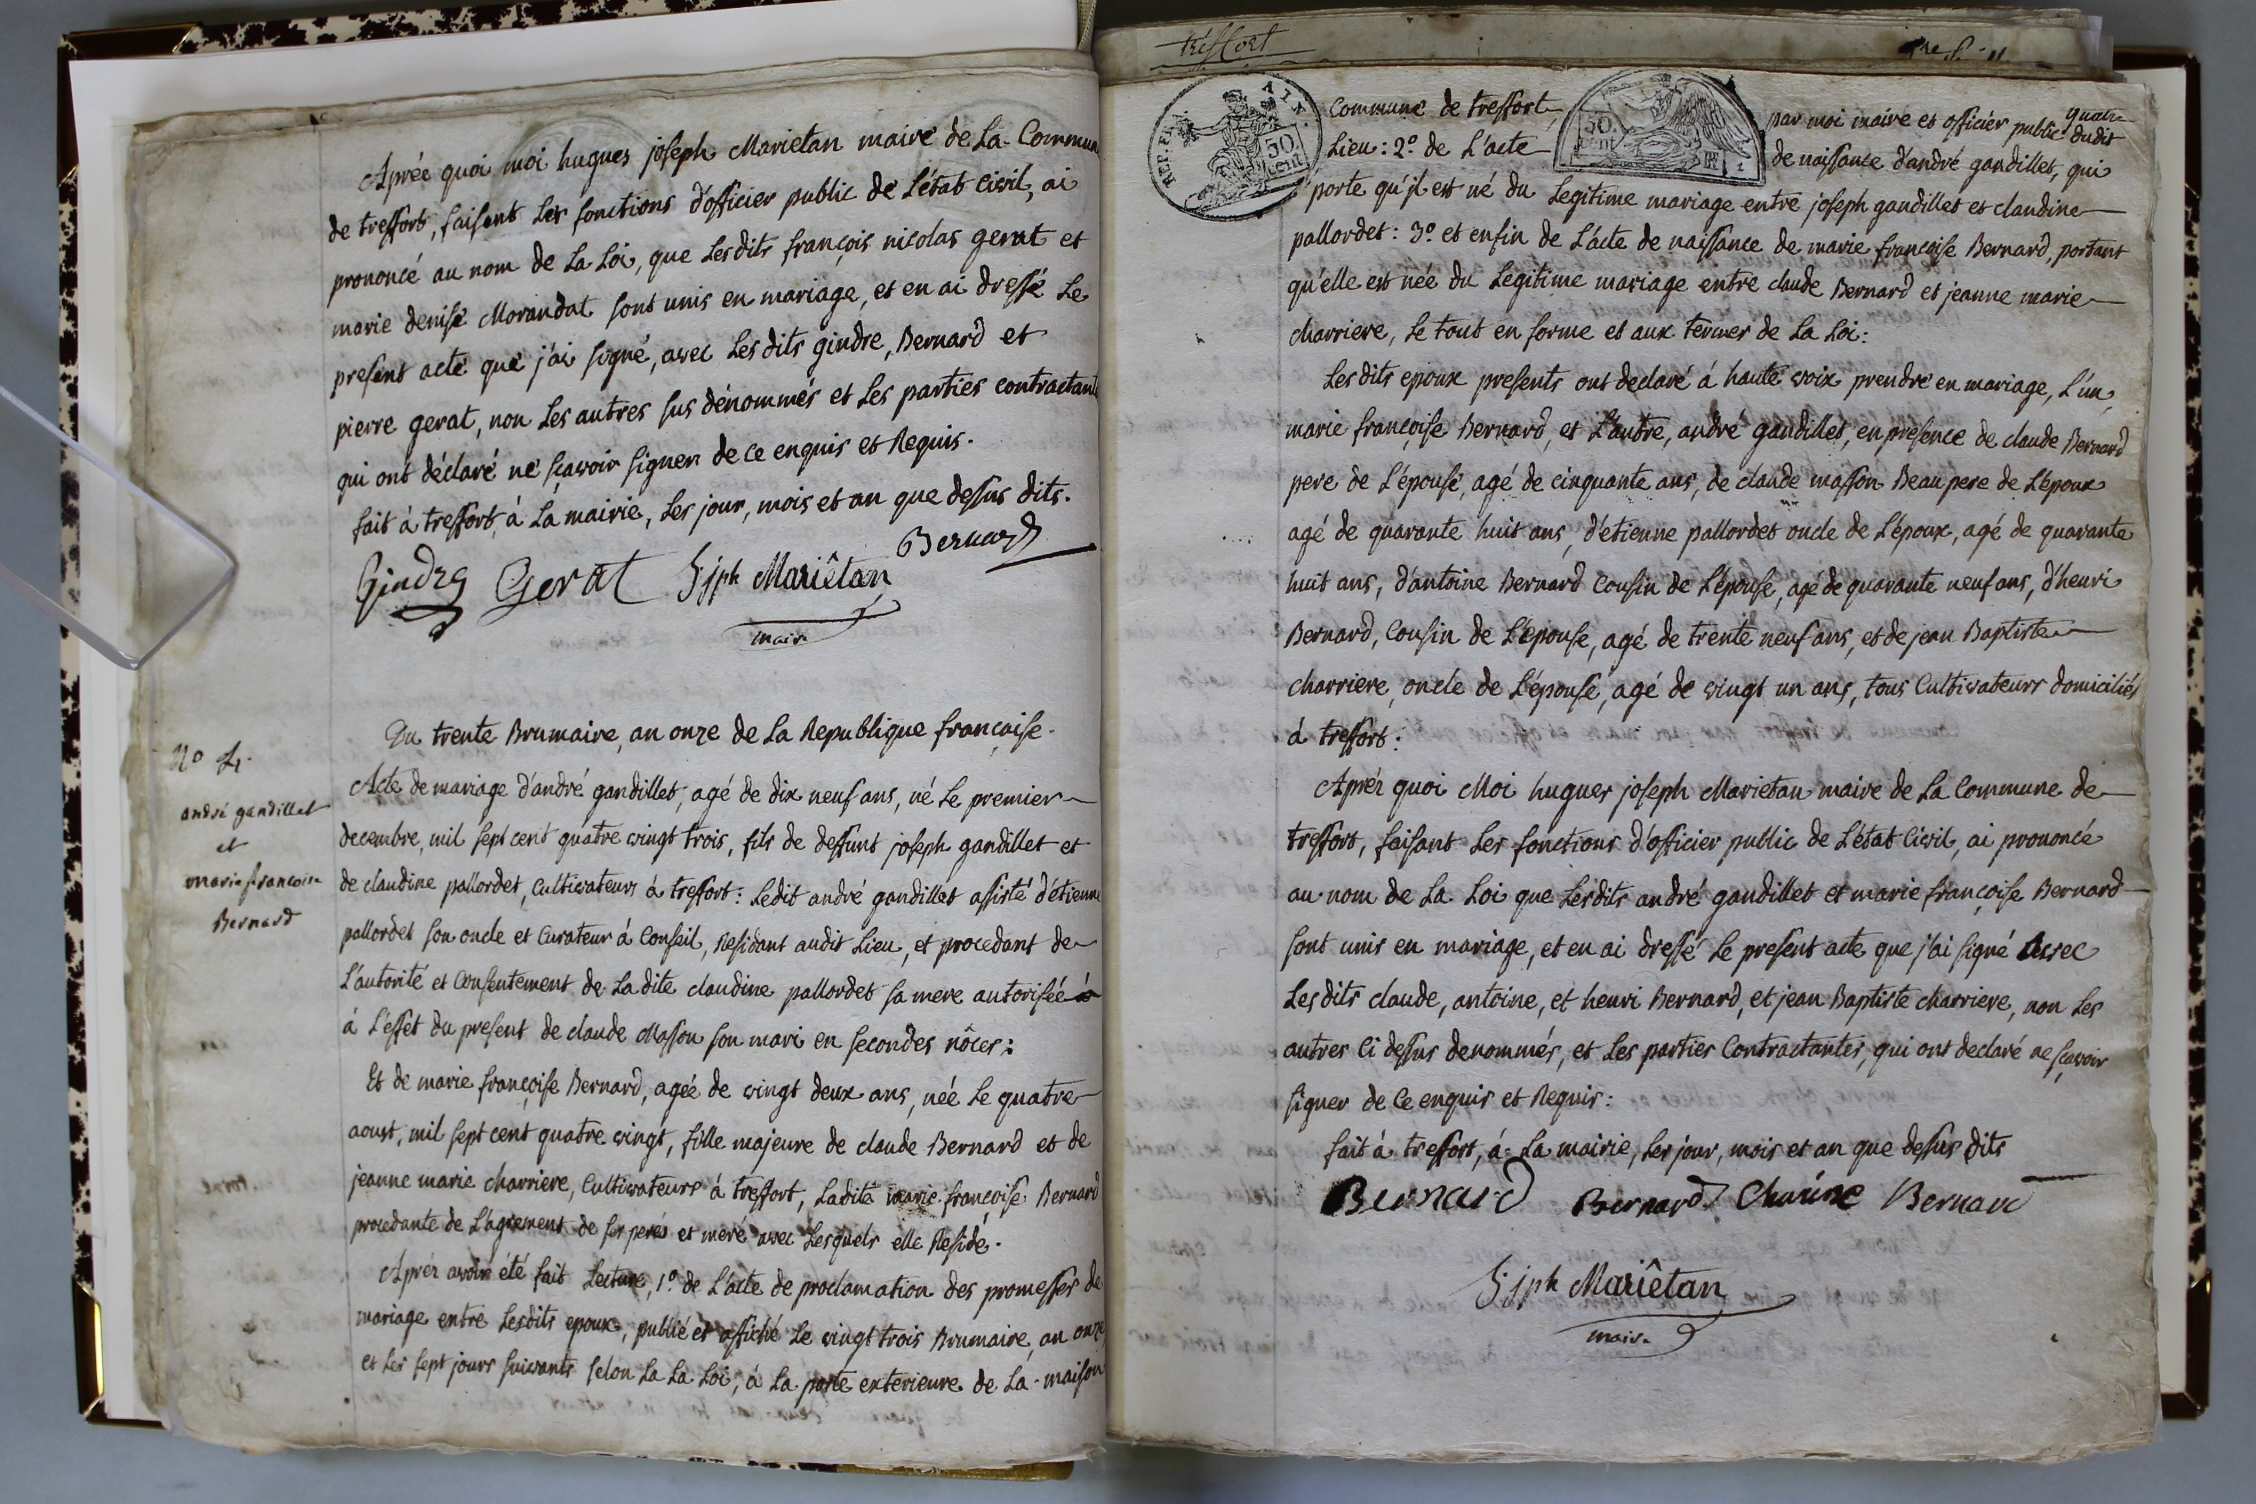 Aprée quoi moi hugues joseph Marietan maire de La Commun
de treffort, faisant Les fonctions d'officier public de L'état Civil, ai
prononcé au nom de La Loi, que Lesdits françois nicolas gerat et
marie denise Morandat sont unis en mariage, et en ai dressé Le
present acte que j'ai signé, avec Lesdits gindre, Bernard et
pierre gerat, non Les autres sus dénommés et Les parties contractant
qui ont déclaré ne sçavoir signer de ce enquis et Requis.
fait à treffort, à La mairie, Les jour, mois et an que dessus dits.
Gindre Gerat h jph Mariêtan Bernard
maire
Du trente Brumaire, an onze de La Republique française.
N° 4.
andré gandillet
et
marie françoise
Bernard
Acte de mariage d'andré gandillet, agé de dix neuf ans, né Le premier
decembre, mil sept cent quatre vingt trois, fils de deffunt joseph gandillet et
de claudine pallordet, Cultivateurs à treffort: Ledit andré gandillet assisté d'étienne
pallordet son oncle et Curateur à Conseil, Residant audit Lieu, et procedant de
L'autorité et Consentement de Ladite claudine pallordet sa mere autorisée
à L'effet du present de claude Masson son mari en secondes nôces:
Et de marie françoise Bernard, agée de vingt deux ans, née Le quatre
aoust, mil sept cent quatre vingt, fille majeure de claude Bernard et de
jeanne marie charriere, Cultivateurs à treffort, Ladite marie françoise Bernard
procedante de L'agrement de ses peres et mere avec Lesquels elle Reside.
Aprér avoir été fait Lecture, 1° de L'acte de proclamation des promesses de
mariage entre Lesdits epoux, publié et affiché Le vingt trois Brumaire, an onze
et Les sept jours suivants selon La La Loi, à La porte exterieure de La maison
treffort
REP. FRA.
AIX.
50. cent
50. cent
Commune de treffort par moi maire et officier public quatre dudit
Lieu: 2° de L'acte de naissance d'andré gandillet, qui
porte qu'il est né du Legitime mariage entre joseph gandillet et claudine
pallordet: 3° et enfin de L'acte de naissance de marie françoise Bernard, portant
qu'elle est née du Legitime mariage entre claude Bernard et jeanne marie
charriere, Le tout en forme et aux termes de La Loi:
Lesdits epoux presents ont declaré à haute voix prendre en mariage, L'un,
marie françoise Bernard, et L'autre, andré gandillet, en presence de claude Bernard
pere de L'épouse, agé de cinquante ans, de claude masson Beau pere de L'époux
agé de quarante huit ans, d'etienne pallordet oncle de L'époux, agé de quarante
huit ans, d'antoine Bernard Cousin de L'épouse, agé de quarante neuf ans, d'henri
Bernard, Cousin de L'épouse, agé de trente neuf ans, et de jean Baptiste
charriere, oncle de L'épouse, agé de vingt un ans, tous Cultivateurs domiciliés
à treffort:
Aprér quoi Moi hugues joseph Marietan maire de La Commune de
treffort, faisant Les fonctions d'officier public de L'état Civil, ai prononcé
au nom de La Loi que Lesdits andré gandillet et marie françoise Bernard
sont unis en mariage, et en ai dressé Le present acte que j'ai signé avec
Lesdits claude, antoine, et henri Bernard, et jean Baptiste charriere, non Les
autres Ci dessus denommés, et Les parties Contractantes, qui ont declaré ne sçavoir
signer de Ce enquis et Requis:
fait à treffort, à La mairie, Les jour, mois et an que dessus dits
Bernard Bernard Chariere Bernard
h jph Mariêtan
maire